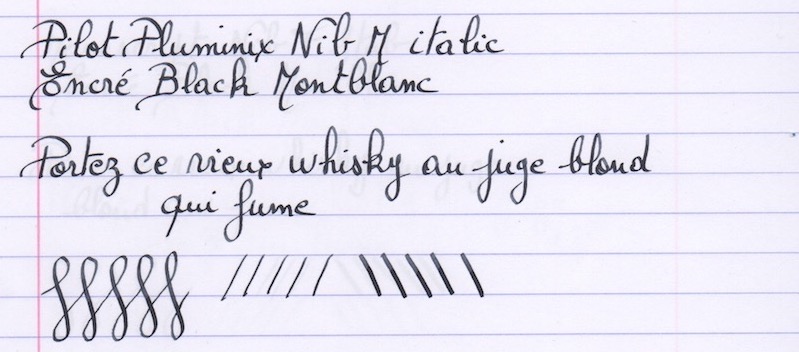 Pilot Pluminix Nib M italic
Encré Black Montblanc
Portez ce vieux whisky au juge blond
qui fume